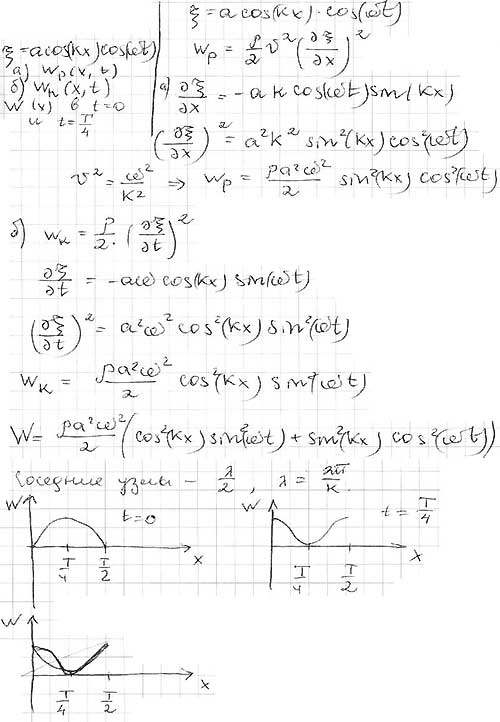 ξ = a cos(kx) cos(ωt)
а) w_p(x, t)
б) w_k(x, t)
W(x) в t=0
и t = T/4
ξ = a cos(kx) · cos(ωt)
w_p = ρ/2 v² (∂ξ/∂x)²
а) ∂ξ/∂x = -a k cos(ωt) sin(kx)
(∂ξ/∂x)² = a²k² sin²(kx) cos²(ωt)
v² = ω²/k² ⇒ w_p = ρa²ω²/2 sin²(kx) cos²(ωt)
б) w_k = ρ/2 · (∂ξ/∂t)²
∂ξ/∂t = -aω cos(kx) sin(ωt)
(∂ξ/∂t)² = a²ω² cos²(kx) sin²(ωt)
w_k = ρa²ω²/2 cos²(kx) sin²(ωt)
W = ρa²ω²/2 (cos²(kx) sin²(ωt) + sin²(kx) cos²(ωt))
Соседние узлы - λ/2, λ = 2π/k.
W t=0 x T/4 T/2
W t = T/4 x T/4 T/2
W x T/4 T/2